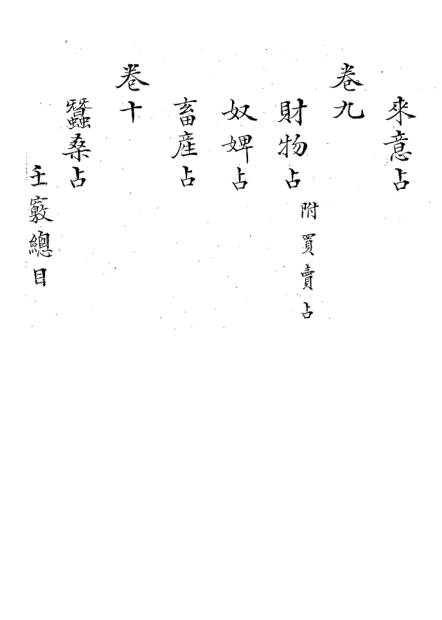 來意占
卷九
財物占 附買賣占
奴婢占
畜産占
卷十
蠶桑占
壬竅總目